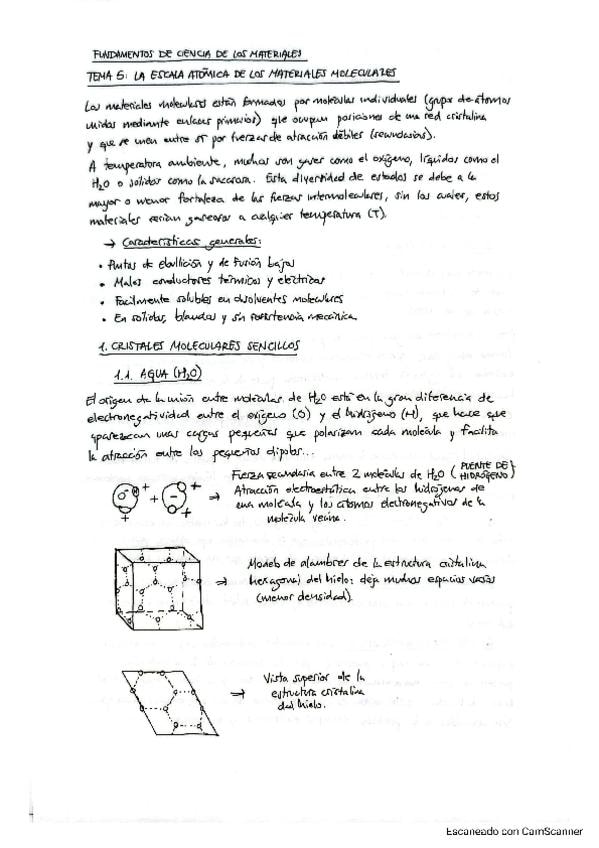 FUNDAMENTOS DE CIENCIA DE LOS MATERIALES
TEMA 5: LA ESCALA ATÓMICA DE LOS MATERIALES MOLECULARES
Los materiales moleculares están formados por moléculas individuales (grupo de átomos
unidos mediante enlaces primarios) que ocupan posiciones de una red cristalina
y que se unen entre sí por fuerzas de atracción débiles (secundarias).
A temperatura ambiente, muchos son gases como el oxígeno, líquidos como el
H2O o sólidos como la sacarosa. Esta diversidad de estados se debe a la
mayor o menor fortaleza de las fuerzas intermoleculares, sin las cuales, estos
materiales serían gaseosos a cualquier temperatura (T).
→ Características generales:
• Puntos de ebullición y de fusión bajos
• Malos conductores térmicos y eléctricos
• Facilmente solubles en disolventes moleculares
• En sólidos, blandos y sin resistencia mecánica.
1. CRISTALES MOLECULARES SENCILLOS
1.1. AGUA (H2O)
El origen de la unión entre moléculas de H2O está en la gran diferencia de
electronegatividad entre el oxígeno (O) y el hidrógeno (H), que hace que
aparezcan unas cargas pequeñas que polarizan cada molécula y facilita
la atracción entre los pequeños dipolos...
→ Fuerza secundaria entre 2 moléculas de H2O (PUENTE DE HIDRÓGENO)
Atracción electroestática entre los hidrógenos de
una molécula y los átomos electronegativos de la
molécula vecina.
→ Modelo de alambres de la estructura cristalina
hexagonal del hielo: deja muchos espacios vacíos
(menor densidad).
→ Vista superior de la
estructura cristalina
del hielo.
Escaneado con CamScanner